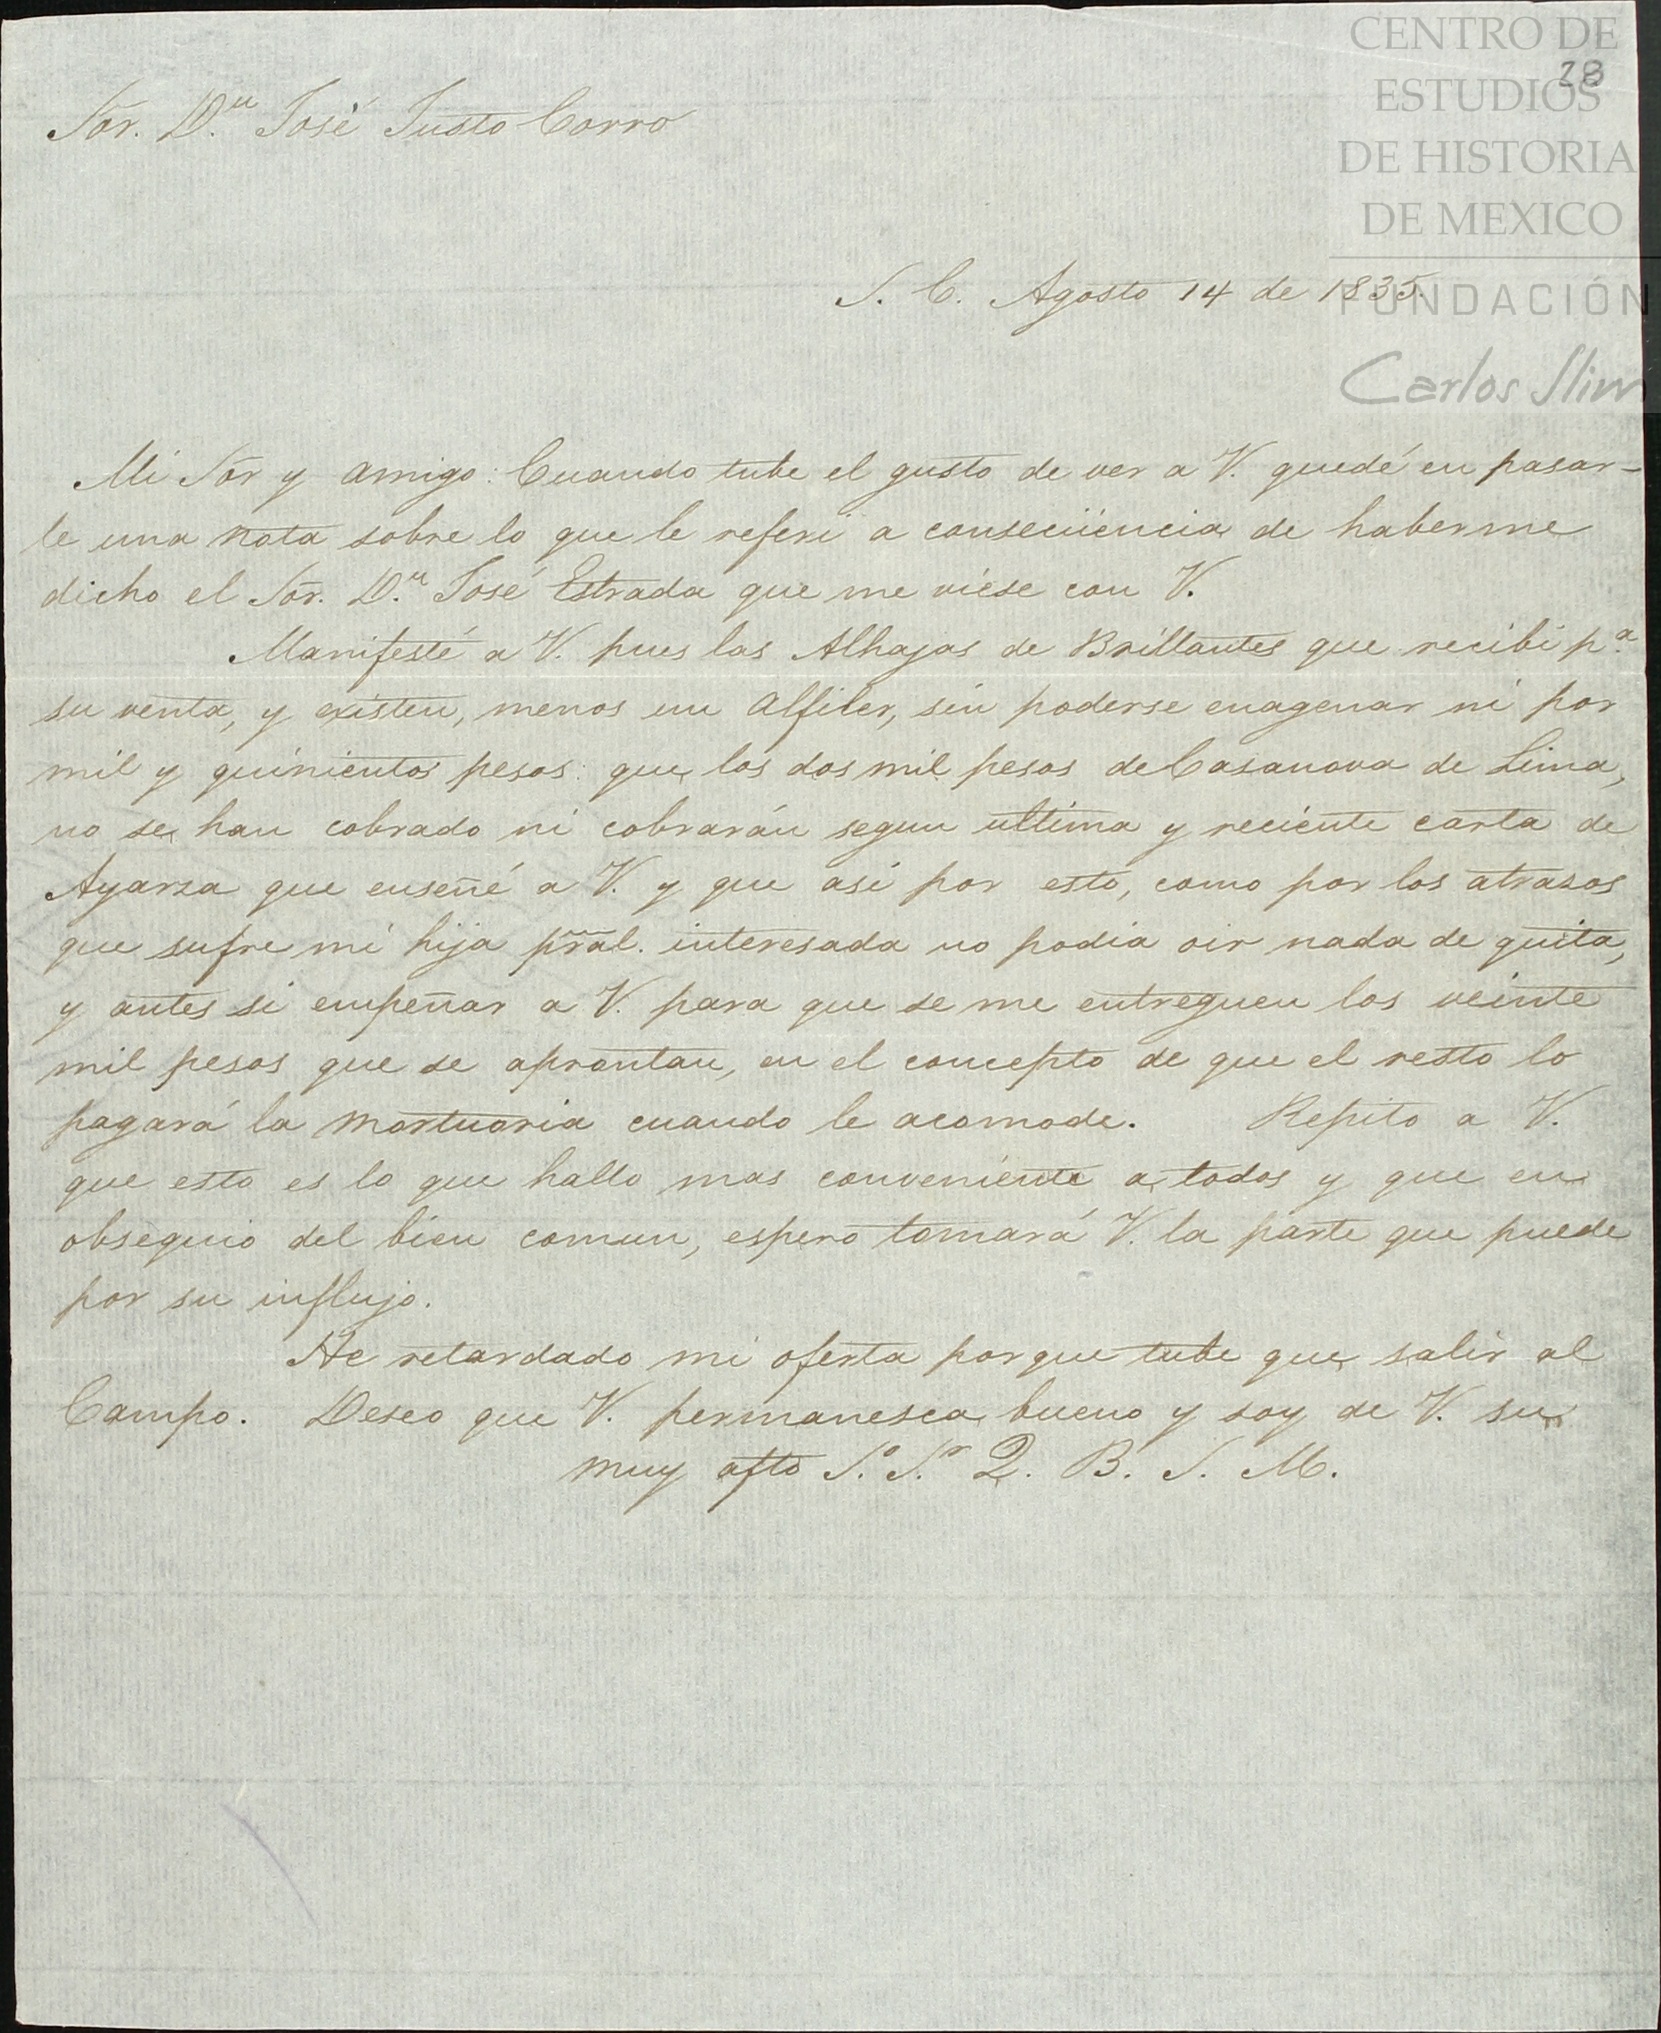 CENTRO DE
ESTUDIOS
DE HISTORIA
DE MEXICO
FUNDACIÓN
Carlos Slim
28
Sor. D.n José Justo Corro
S. C. Agosto 14 de 1835.
Mi Sor y amigo: Cuando tube el gusto de ver a V. quedé en pasar-
le una nota sobre lo que le referi a consecüencia de haberme
dicho el Sor. D.n José Estrada que me viese con V.
Manifesté a V. pues las Alhajas de Brillantes que recibi p.a
su venta, y existen, menos un Alfiler, sin poderse enagenar ni por
mil y quinientos pesos: que los dos mil pesos de Casanova de Lima,
no se han cobrado ni cobrarán segun ultima y reciente carta de
Ayarza que enseñé a V. y que asi por esto, como por los atrasos
que sufre mi hija pral. interesada no podia oir nada de quita,
y antes si empeñar a V. para que se me entreguen los veinte
mil pesos que se aprontan, en el concepto de que el resto lo
pagará la mortuoria cuando le acomode. Repito a V.
que esto es lo que hallo mas conveniente a todos y que en
obsequio del bien comun, espero tomará V. la parte que puede
por su influjo.
He retardado mi oferta porque tube que salir al
Campo. Deseo que V. permanesca bueno y soy de V. su
muy afto S.o S.r Q. B. S. M.